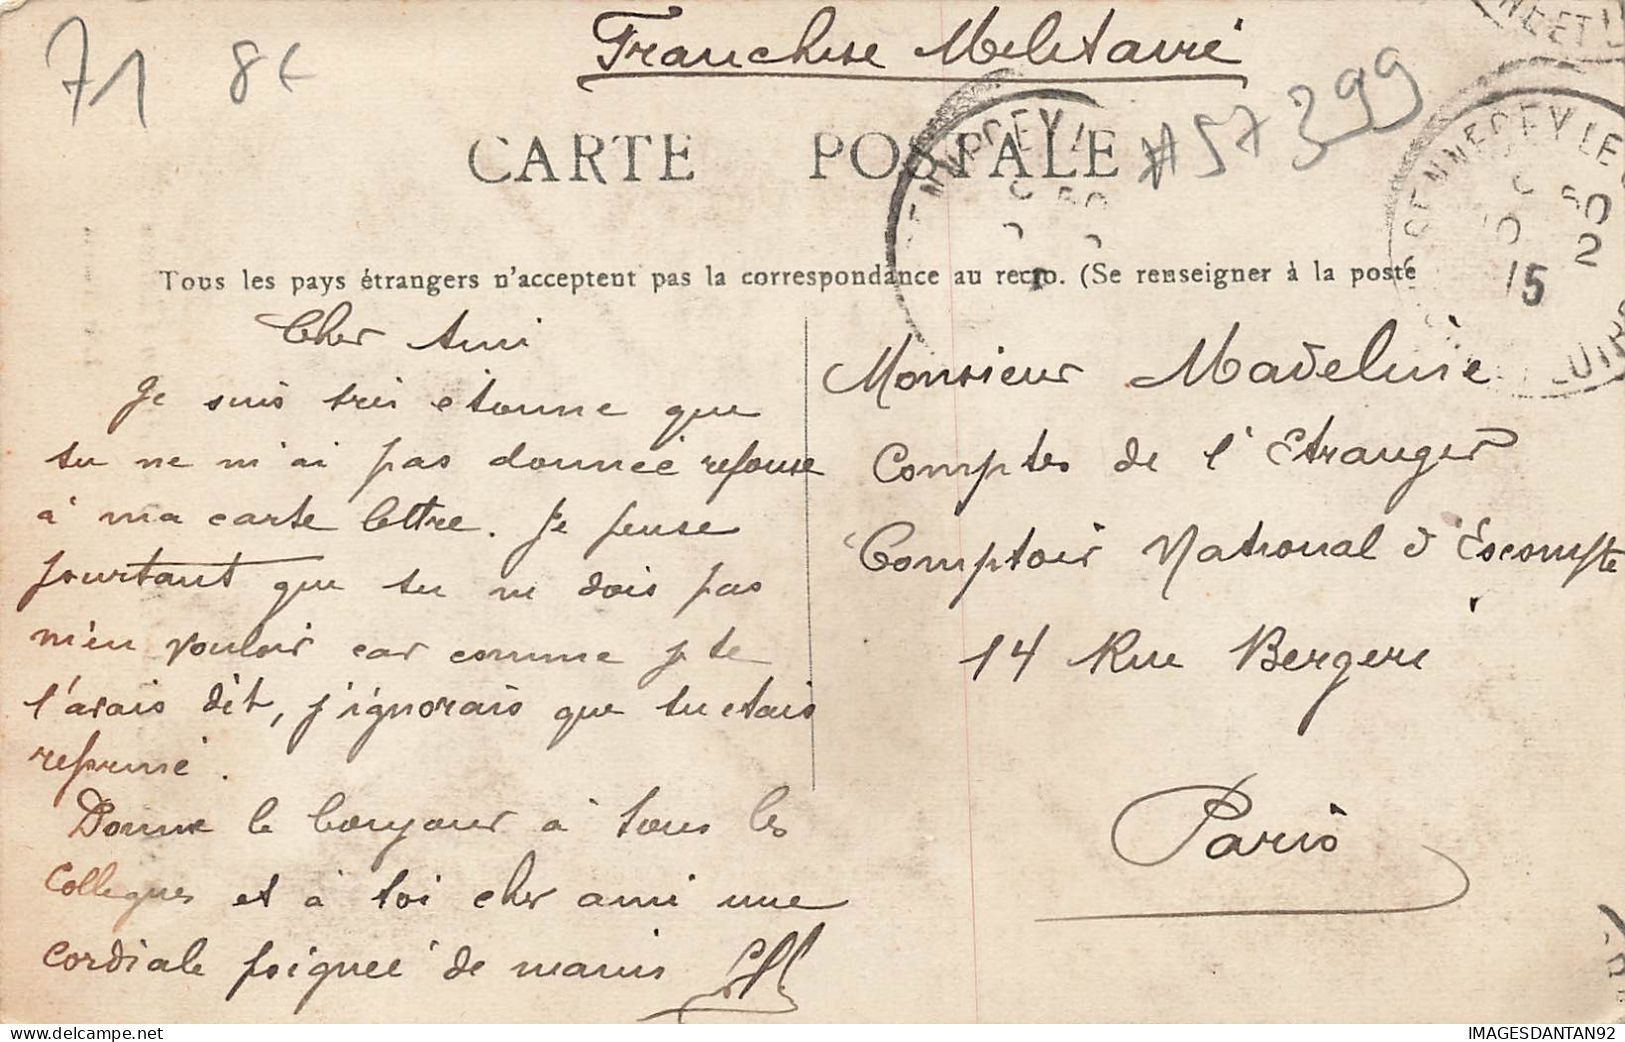 Franchise Militaire
71 8€
#57399
CARTE POSTALE
Tous les pays étrangers n'acceptent pas la correspondance au recto. (Se renseigner à la poste
GENNECEY LE
15
Cher Ami
Je suis très étonné que
tu ne m'ai pas donnée réponse
à ma carte lettre. Je pense
pourtant que tu ne dois pas
m'en vouloir car comme je te
l'avais dit, j'ignorais que tu étais
réformé.
Donne le bonjour à tous les
Collègues et à toi cher ami une
cordiale poignée de mains
Monsieur Madeline
Comptes de l'Etranger
Comptoir National d'Escompte
14 Rue Bergère
Paris
IMAGESDANTAN92